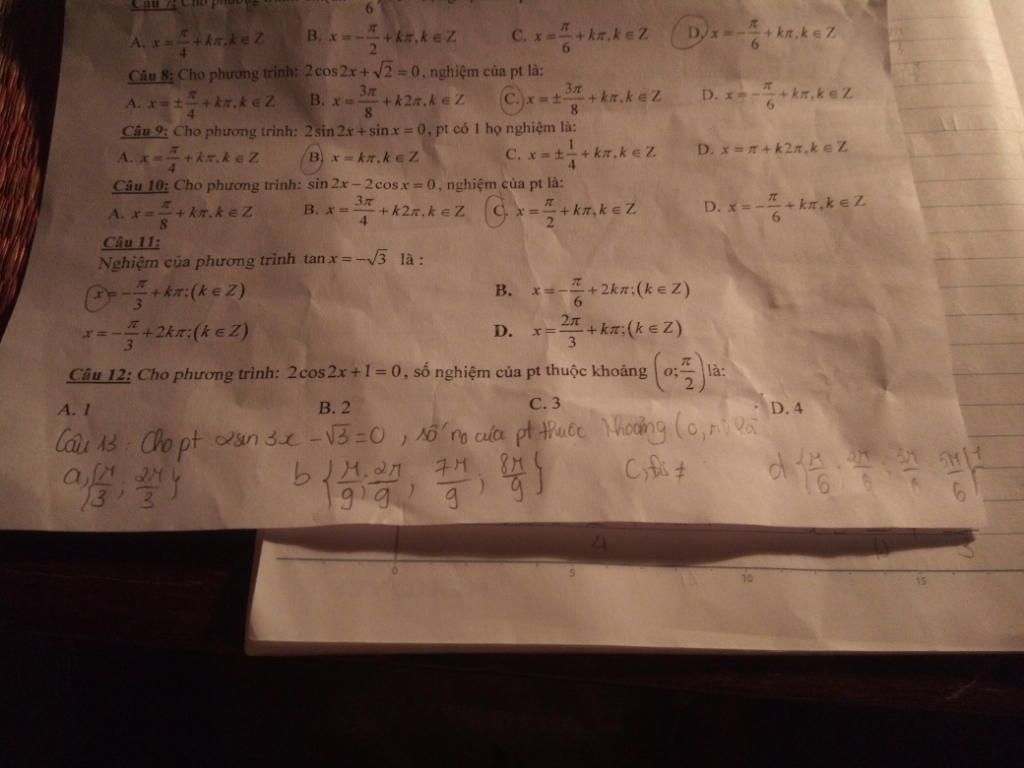 Câu 7: Cho phương trình
6
A. x = π/4 + kπ, k ∈ Z B. x = −π/2 + kπ, k ∈ Z C. x = π/6 + kπ, k ∈ Z D. x = −π/6 + kπ, k ∈ Z
Câu 8: Cho phương trình: 2cos2x + √2 = 0, nghiệm của pt là:
A. x = ±π/4 + kπ, k ∈ Z B. x = 3π/8 + k2π, k ∈ Z C. x = ±3π/8 + kπ, k ∈ Z D. x = −π/6 + kπ, k ∈ Z
Câu 9: Cho phương trình: 2sin2x + sinx = 0, pt có 1 họ nghiệm là:
A. x = π/4 + kπ, k ∈ Z B. x = kπ, k ∈ Z C. x = ±1/4 + kπ, k ∈ Z D. x = π + k2π, k ∈ Z
Câu 10: Cho phương trình: sin2x − 2cosx = 0, nghiệm của pt là:
A. x = π/8 + kπ, k ∈ Z B. x = 3π/4 + k2π, k ∈ Z C. x = π/2 + kπ, k ∈ Z D. x = −π/6 + kπ, k ∈ Z
Câu 11:
Nghiệm của phương trình tan x = −√3 là :
x = −π/3 + kπ; (k ∈ Z) B. x = −π/6 + 2kπ; (k ∈ Z)
x = −π/3 + 2kπ; (k ∈ Z) D. x = 2π/3 + kπ; (k ∈ Z)
Câu 12: Cho phương trình: 2cos2x + 1 = 0, số nghiệm của pt thuộc khoảng (o; π/2) là:
A. 1 B. 2 C. 3 D. 4
Câu 13: Cho pt 2sin 3x − √3 = 0, số no của pt thuộc khoảng (0, π) là
a, {π/3; 2π/3} b {π/9; 2π/9; 7π/9; 8π/9} C, Đs ≠ d {π/6; 2π/6; 3π/6 5π/6}
4 5
0 5 10 15